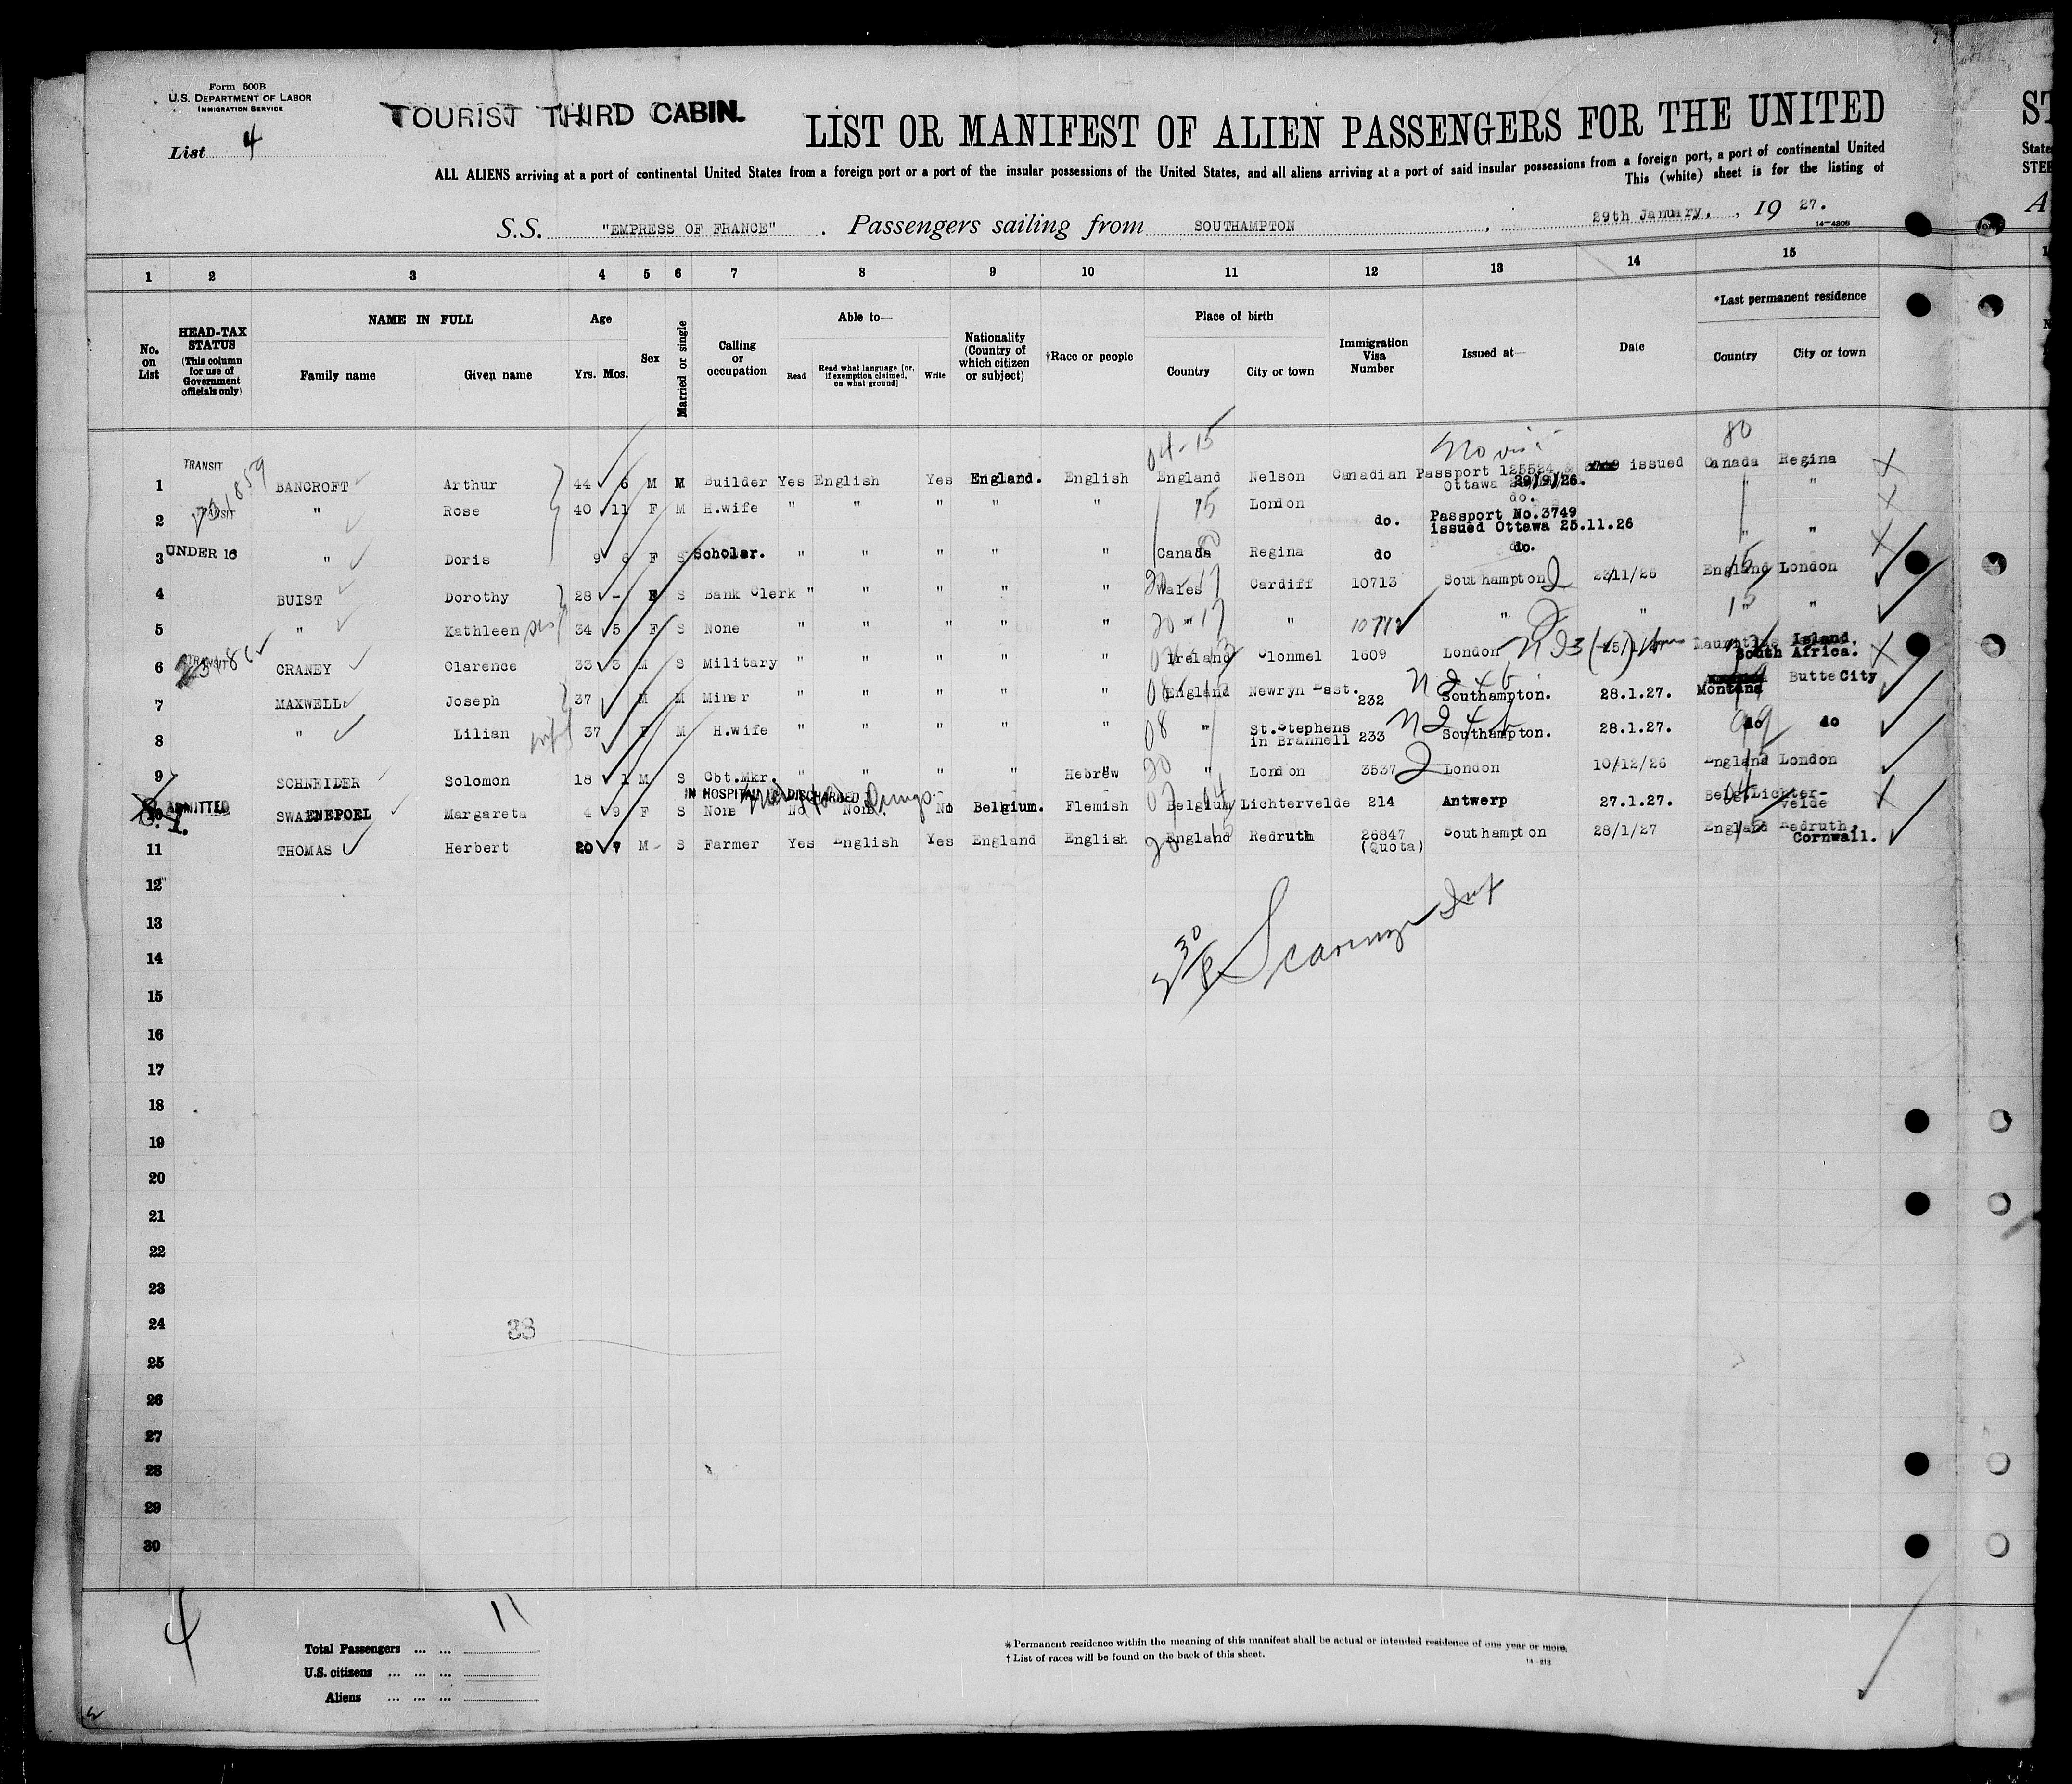 Form 500B
U.S. DEPARTMENT OF LABOR
IMMIGRATION SERVICE
List 4
TOURIST THIRD CABIN.
LIST OR MANIFEST OF ALIEN PASSENGERS FOR THE UNITED
ALL ALIENS arriving at a port of continental United States from a foreign port or a port of the insular possessions of the United States, and all aliens arriving at a port of said insular possessions from a foreign port, a port of continental United
This (white) sheet is for the listing of
S.S. "EMPRESS OF FRANCE". Passengers sailing from SOUTHAMPTON, 29th January, 1927.
14—430B
1 2 3 4 5 6 7 8 9 10 11 12 13 14 15
No. on List
HEAD-TAX STATUS (This column for use of Government officials only)
NAME IN FULL
Family name
Given name
Age
Yrs. Mos.
Sex
Married or single
Calling or occupation
Able to—
Read
Read what language [or, if exemption claimed, on what ground]
Write
Nationality (Country of which citizen or subject)
†Race or people
Place of birth
Country
City or town
Immigration Visa Number
Issued at—
Date
*Last permanent residence
Country
City or town
04-15
80
1 TRANSIT BANCROFT Arthur 44 6 M M Builder Yes English Yes England. English England Nelson Canadian Passport 125524 & issued Canada Regina
Ottawa 29/9/26.
2 TRANSIT " Rose 40 11 F M H.wife " " " " " 15 London do. do. " "
Passport No.3749
issued Ottawa 25.11.26
3 UNDER 16 " Doris 9 6 F S Scholar. " " " " " Canada Regina do do. " "
4 BUIST Dorothy 28 - F S Bank Clerk " " " " " Wales Cardiff 10713 Southampton 23/11/26 England London
5 " Kathleen sis 34 5 F S None " " " " " " " 10712 " " " "
6 TRANSIT CRANEY Clarence 33 3 M S Military " " " " " Ireland Clonmel 1609 London Mauritius Island.
South Africa.
7 MAXWELL Joseph 37 M M Miner " " " " " England Newryn East. 232 Southampton. 28.1.27. Montana Butte City
8 " Lilian wife 37 F M H.wife " " " " " " St.Stephens in Brannell 233 Southampton. 28.1.27. do do
9 SCHNEIDER Solomon 18 1 M S Cbt.Mkr. " " " " Hebrew " London 3537 London 10/12/26 England London
IN HOSPITAL DISCHARGED
10 ADMITTED SWAENEPOEL Margareta 4 9 F S None No None. No Belgium. Flemish Belgium Lichtervelde 214 Antwerp 27.1.27. Belg. Lichter-
velde
11 THOMAS Herbert 20 7 M S Farmer Yes English Yes England English England Redruth 26847 (Quota) Southampton 28/1/27 England Redruth,
Cornwall.
12
13
14
15
16
17
18
19
20
21
22
23
24
33
25
26
27
28
29
30
4
11
Total Passengers ... ...
U.S. citizens ... ... ...
Aliens ... ... ...
*Permanent residence within the meaning of this manifest shall be actual or intended residence of one year or more.
†List of races will be found on the back of this sheet.
14—213